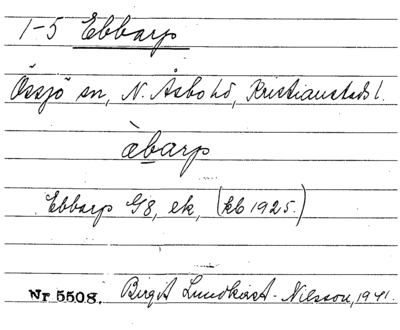 1-5 Ebbarp
Össjö sn, N. Åsbo hd, Kristianstads l.
àbarp
Ebbarp G8, ek, (kb 1925.)
Nr 5508. Birgit Lundkvist-Nilsson, 1941.